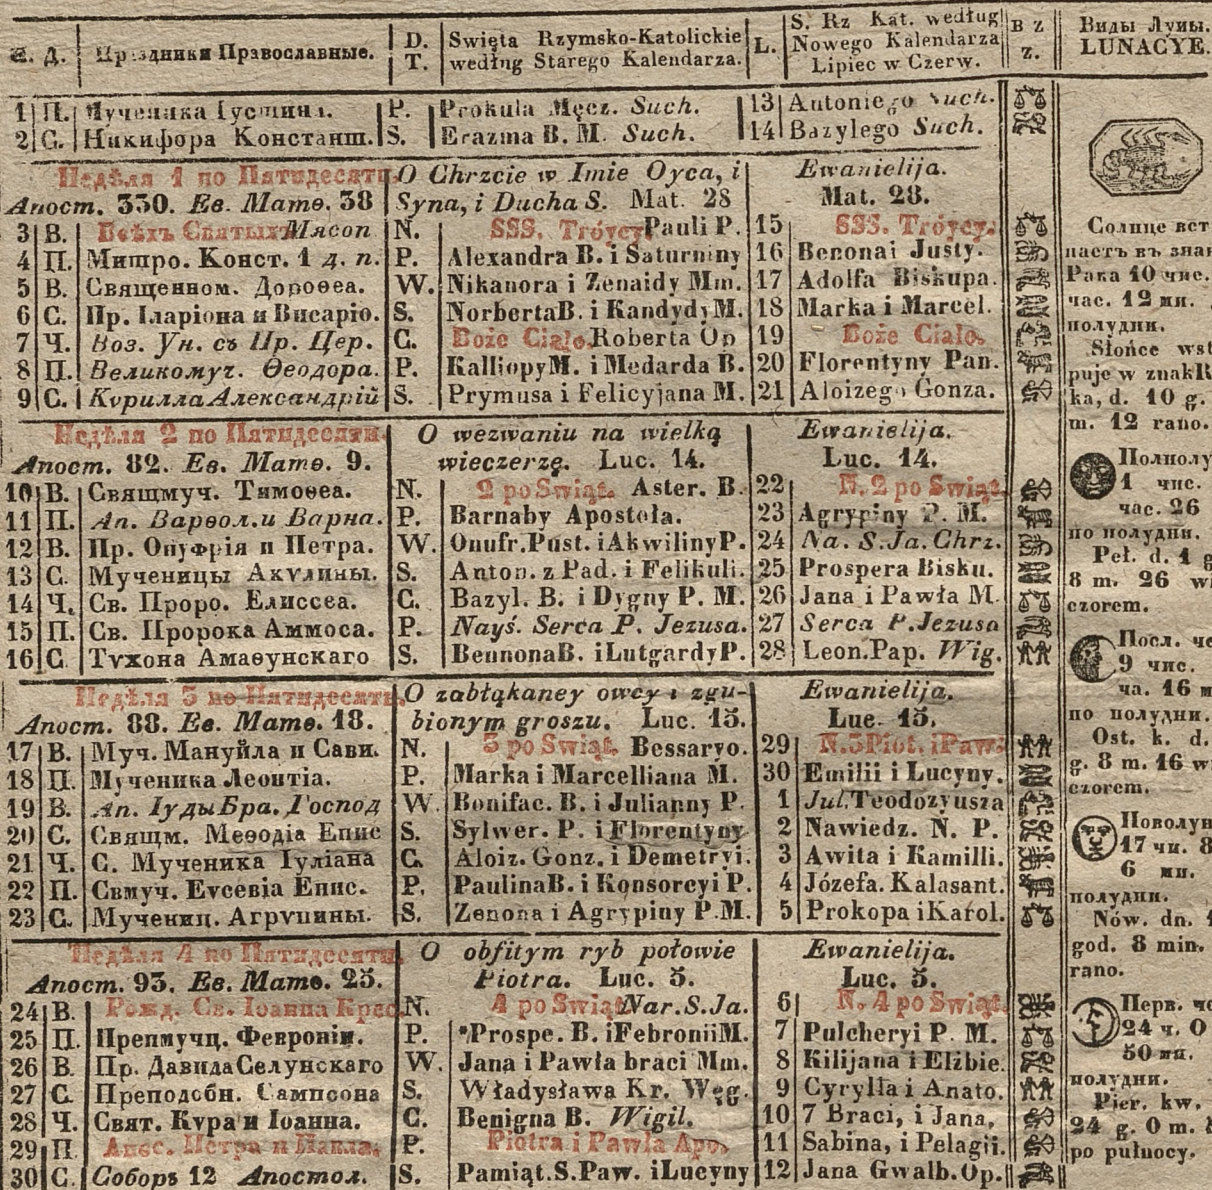 Ж. Д. Праздники Православные. D. T. Swięta Rzymsko-Katolickie według Starego Kalendarza. L. S. Rz Kat. według Nowego Kalendarza Lipiec w Czerw. B Z z. Виды Луны. LUNACYE.
1 П. Мученика Іустина. P. Prokula Męcz. Such. 13 Antoniego Such.
2 С. Никифора Констант. S. Erazma B. M. Such. 14 Bazylego Such.
Недѣля 1 по Пятидесяти. O Chrzcie w Imie Oyca, i Ewanielija.
Апост. 330. Ев. Матѳ. 38 Syna, i Ducha S. Mat. 28 Mat. 28.
3 В. Всѣхъ Святыхъ Мясоп N. SSS. Tróycy. Pauli P. 15 SSS. Tróycy.
4 П. Митро. Конст. 1 д. п. P. Alexandra B. i Saturniny 16 Benonai Justy.
5 В. Священном. Дороѳеа. W. Nikanora i Zenaidy Mm. 17 Adolfa Biskupa.
6 С. Пр. Іларіона и Висаріо. S. Norberta B. i Kandydy M. 18 Marka i Marcel.
7 Ч. Воз. Ун. съ Пр. Цер. C. Boże Ciało. Roberta Op 19 Boże Ciało.
8 П. Великомуч. Ѳеодора. P. Kalliopy M. i Medarda B. 20 Florentyny Pan.
9 С. Кѵрилла Александрій S. Prymusa i Felicyjana M. 21 Aloizego Gonza.
Недѣля 2 по Пятидесяти. O wezwaniu na wielką Ewanielija.
Апост. 82. Ев. Матѳ. 9. wieczerzę. Luc. 14. Luc. 14.
10 В. Свящмуч. Тимоѳеа. N. 2 po Swiąt. Aster. B. 22 N. 2 po Swiąt.
11 П. Ап. Варѳол. и Варна. P. Barnaby Apostoła. 23 Agrypiny P. M.
12 В. Пр. Онуфрія и Петра. W. Onufr. Pust. i Akwiliny P. 24 Na. S. Ja. Chrz.
13 С. Мученицы Акѵлины. S. Anton. z Pad. i Felikuli. 25 Prospera Bisku.
14 Ч. Св. Проро. Елиссеа. C. Bazyl. B. i Dygny P. M. 26 Jana i Pawła M.
15 П. Св. Пророка Аммоса. P. Nayś. Serca P. Jezusa. 27 Serca P. Jezusa
16 С. Тѵхона Амаѳунскаго S. Bennona B. i Lutgardy P. 28 Leon. Pap. Wig.
Недѣля 3 по Пятидесяти. O zabłąkaney owcy i zgu- Ewanielija.
Апост. 88. Ев. Матѳ. 18. bionym groszu. Luc. 15. Luc. 15.
17 В. Муч. Мануйла и Сави. N. 3 po Swiąt. Bessaryo. 29 N. 3 Piot. i Paw.
18 П. Мученика Леонтіа. P. Marka i Marcelliana M. 30 Emilii i Lucyny.
19 В. Ап. Іуды Бра. Господ W. Bonifac. B. i Julianny P. 1 Jul. Teodozyusza
20 С. Свящм. Меѳодіа Епис S. Sylwer. P. i Florentyny 2 Nawiedz. N. P.
21 Ч. С. Мученика Іуліана C. Aloiz. Gonz. i Demetryi. 3 Awita i Kamilli.
22 П. Свмуч. Еѵсевіа Епис. P. Paulina B. i Konsorcyi P. 4 Józefa. Kalasant.
23 С. Мучениц. Агрѵпины. S. Zenona i Agrypiny P. M. 5 Prokopa i Karol.
Недѣля 4 по Пятидесяти. O obfitym ryb połowie Ewanielija.
Апост. 93. Ев. Матѳ. 25. Piotra. Luc. 5. Luc. 5.
24 В. Рожд. Св. Іоанна Крес. N. 4 po Swiąt. Nar. S. Ja. 6 N. 4 po Swiąt.
25 П. Препмучц. Февроніи. P. Prospe. B. i Febronii M. 7 Pulcheryi P. M.
26 В. Пр. Давида Селунскаго W. Jana i Pawła braci Mm. 8 Kilijana i Elżbie.
27 С. Преподобн. Сампсона S. Władysława Kr. Węg. 9 Cyrylla i Anato.
28 Ч. Свят. Кѵра и Іоанна. C. Benigna B. Wigil. 10 7 Braci, i Jana,
29 П Апос. Петра и Павла. P. Piotra i Pawła App. 11 Sabina, i Pelagii.
30 С. Соборъ 12 Апостол. S. Pamiąt. S. Paw. i Lucyny 12 Jana Gwalb. Op.
Солнце вст
паетъ въ знак
Рака 10 чис.
час. 12 ми.
полудни.
Słońce wst
puje w znak R
ka, d. 10 g.
m. 12 rano.
Полнолу
1 чис.
час. 26
по полудни.
Peł. d. 1 g
8 m. 26 wi
czorem.
Посл. че
9 чис.
ча. 16 м
по полудни.
Ost. k. d.
g. 8 m. 16 wi
czorem.
Новолун
17 чи. 8
6 ми.
полудни.
Nów. dn. 1
god. 8 min.
rano.
Перв. че
24 ч. 0
50 ми.
полудни.
Pier. kw.
24 g. 0 m.
po pułnocy.